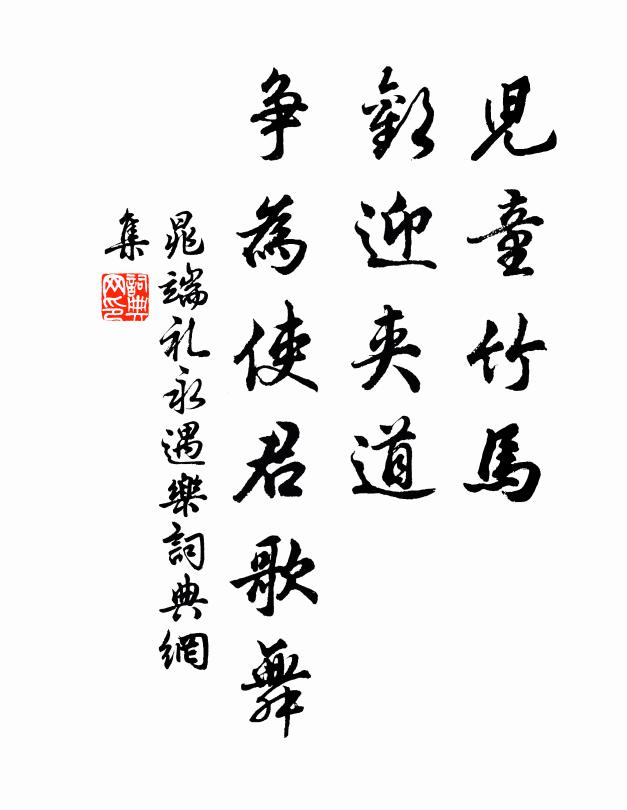 兒童竹馬
歡迎夾道
爭為使君歌舞
晁端礼永遇樂詞典網
集
詞典網印